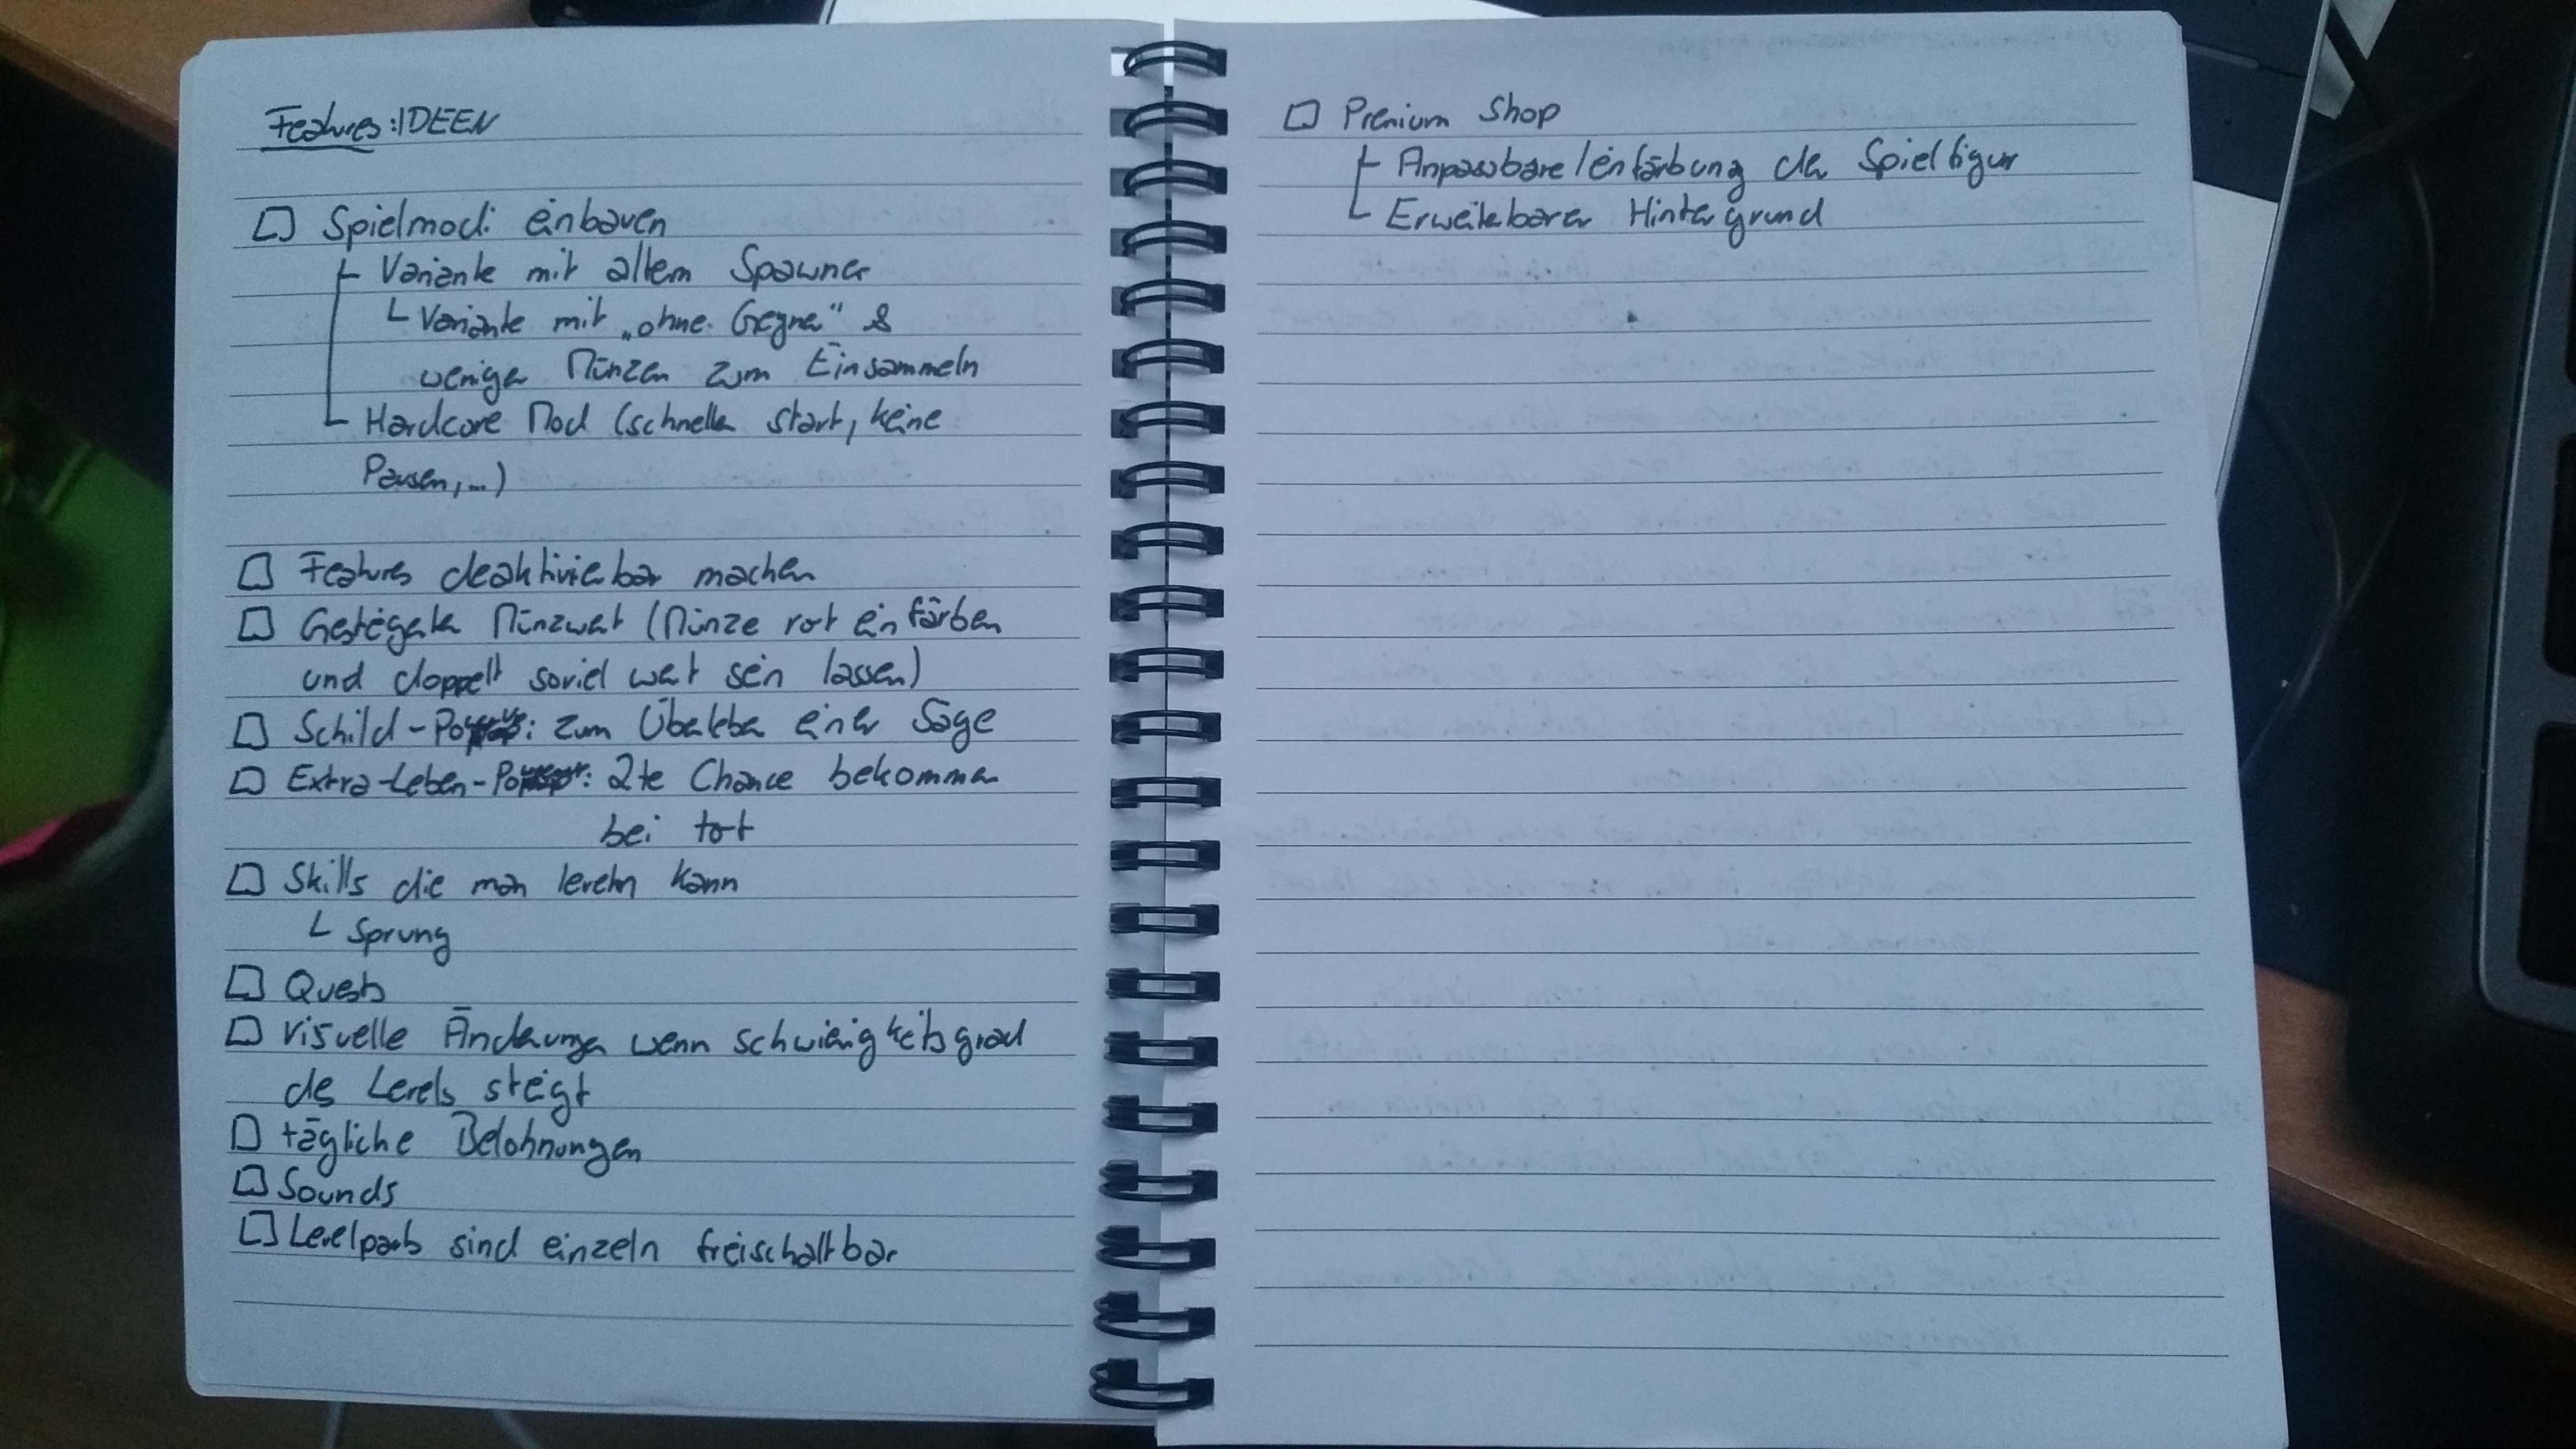 Features: IDEEN
Spielmodi einbauen
Variante mit altem Spawner
Variante mit „ohne Gegner" &
weniger Münzen zum Einsammeln
Hardcore Mod (schneller start, keine
Pausen,...)
Features deaktivierbar machen
Gesteigerter Münzwert (Münze rot einfärben
und doppelt soviel wert sein lassen)
Schild-: zum Überleben einer Säge
Extra-Leben-: 2te Chance bekommen
bei tot
Skills die man leveln kann
Sprung
Quests
visuelle Änderungen wenn schwierigkeitsgrad
des Levels steigt
tägliche Belohnungen
Sounds
Levelparts sind einzeln freischaltbar
Premium Shop
Anpassbare/einfärbung der Spielfigur
Erweiterbarer Hintergrund